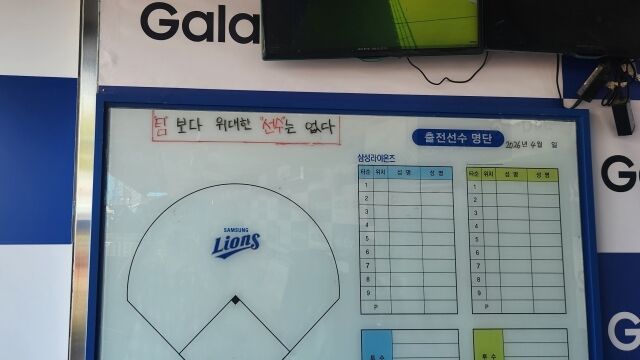 Gala
팀 보다 위대한 "선수"는 없다
출전선수 명단
2026년 4월 일
삼성라이온즈
타순 위치 성 명 성 명
타순 위치 성 명 성 명
1
2
3
4
5
6
7
8
9
P
1
2
3
4
5
6
7
8
9
P
SAMSUNG
Lions
투수
투수
G
Ga